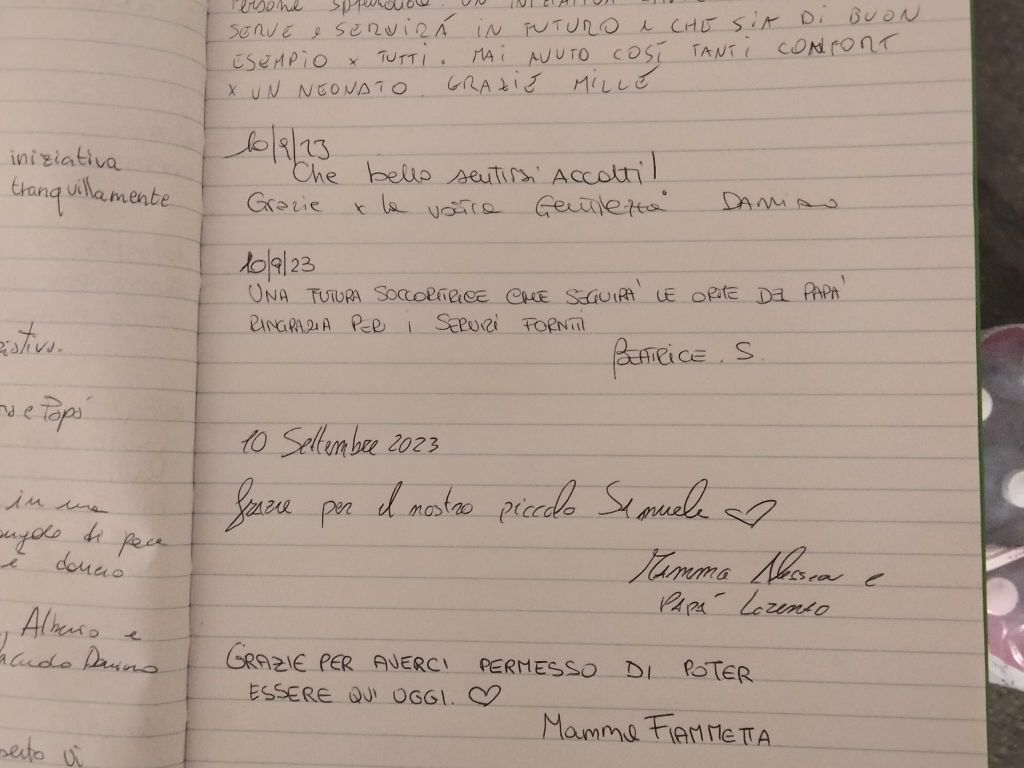 iniziativa
tranquillamente
e Papà
in una
di pace
e
Alberto e
vi
SERVE e SERVIRÁ IN FUTURO e CHE SIA DI BUON
ESEMPIO x TUTTI. MAI AVUTO COSÍ TANTI COMFORT
x UN NEONATO. GRAZIE MILLE
10/9/23
Che bello sentirsi Accolti!
Grazie x la vostra Gentilezza DAMIANO
10/9/23
UNA FUTURA SOCCORTRICE CHE SEGUIRA' LE ORME DEL PAPA'
RINGRAZIA PER I SERVIZI FORNITI
BEATRICE. S.
10 Settembre 2023
Grazie per il nostro piccolo Samuele ♡
Mamma Alessia e
PAPÁ Lorenzo
GRAZIE PER AVERCI PERMESSO DI POTER
ESSERE QUI OGGI. ♡
Mamma FIAMMETTA